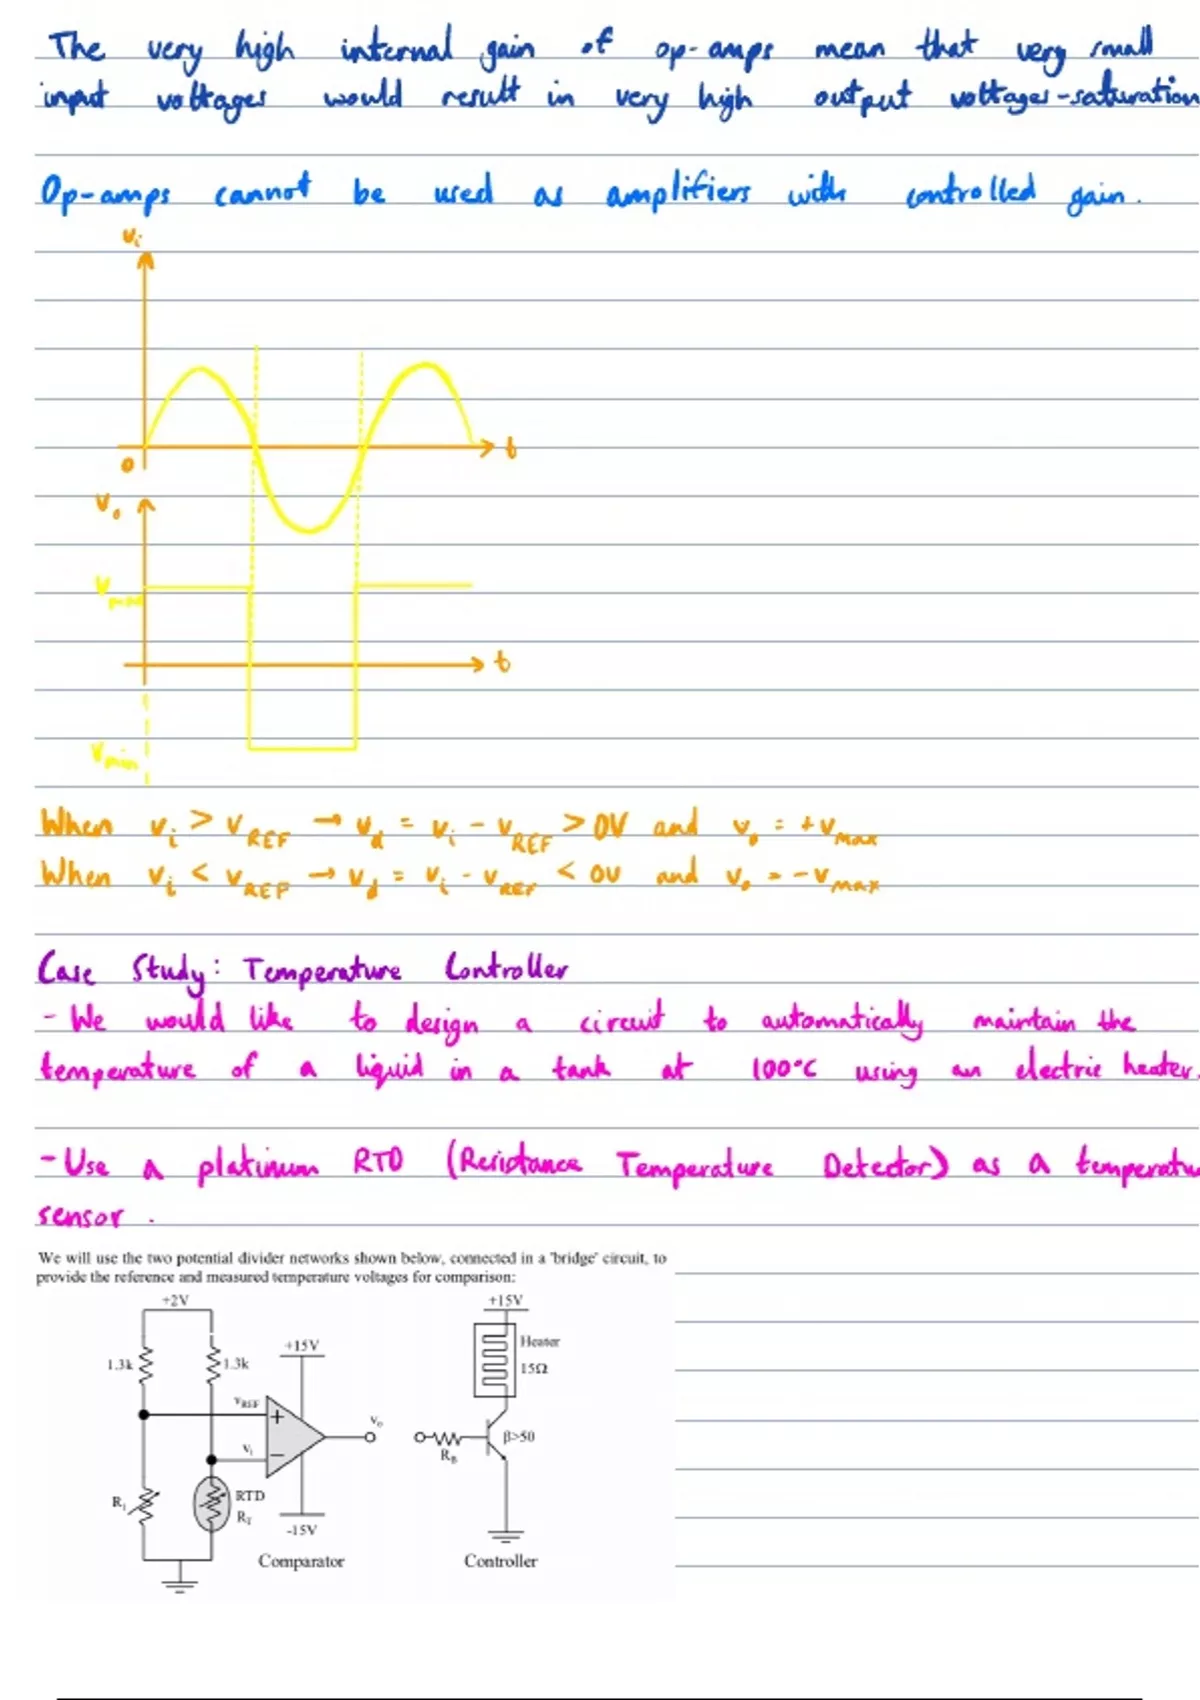 The very high internal gain of op-amps mean that very small
input voltages would result in very high output voltages - saturation
Op-amps cannot be used as amplifiers with controlled gain.
vᵢ
t
0
vₒ
Vmax
t
Vmin
When vᵢ > vREF → vd = vᵢ - vREF > 0V and vₒ = +vMAX
When vᵢ < vREF → vd = vᵢ - vREF < 0V and vₒ = -vMAX
Case Study: Temperature Controller
- We would like to design a circuit to automatically maintain the
temperature of a liquid in a tank at 100°C using an electric heater.
- Use a platinum RTD (Resistance Temperature Detector) as a temperatu
sensor.
We will use the two potential divider networks shown below, connected in a 'bridge' circuit, to
provide the reference and measured temperature voltages for comparison:
+2V
+15V
+15V
Heater
1.3k
1.3k
15Ω
vREF
+
vₒ
β>50
vᵢ
−
RB
RTD
R₁
RT
-15V
Comparator
Controller